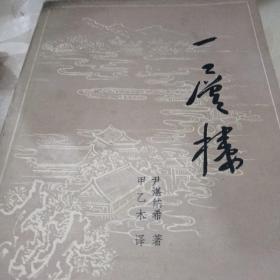 一层楼
尹湛纳希 著
甲乙木 译